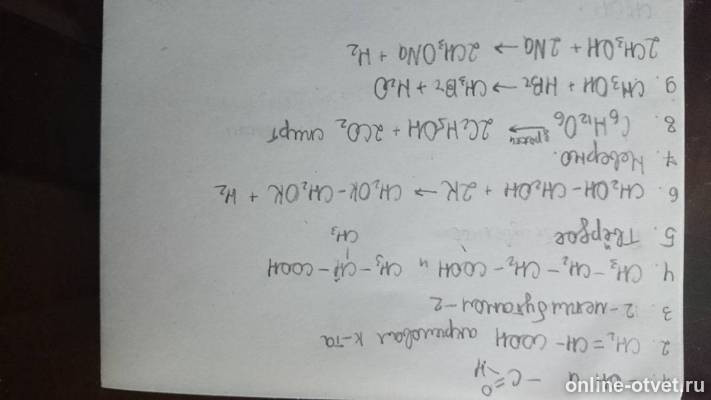 1. -OH и -C=O
H
2. CH₂=CH-COOH акриловая к-та
3. 2-метилбутанол-2
4. CH₃-CH₂-CH₂-COOH и CH₃-CH-COOH
CH₃
5. Твёрдое
6. CH₂OH-CH₂OH + 2K → CH₂OK-CH₂OK + H₂
7. Неверно.
8. C₆H₁₂O₆ → 2C₂H₅OH + 2CO₂ спирт
9. CH₃OH + HBr → CH₃Br + H₂O
2CH₃OH + 2Na → 2CH₃ONa + H₂
online-otvet.ru